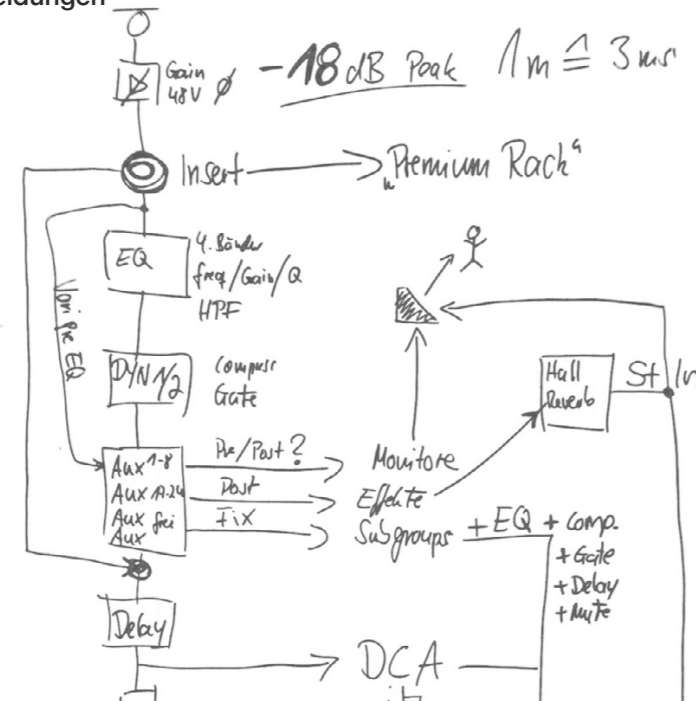 eldungen
Gain
48V Ø
-18 dB Peak
1m ≙ 3ms
Insert
"Premium Rack"
EQ
4. Bänder
freq/Gain/Q
HPF
Vari pre EQ
DYN 1/2
Compressr
Gate
Hall
Reverb
St In
Aux 1-8
Aux
Aux frei
Aux
Pre/Post?
Post
Fix
Monitore
Effekte
Subgroups + EQ + Comp.
+ Gate
+ Delay
+ Mute
Delay
DCA